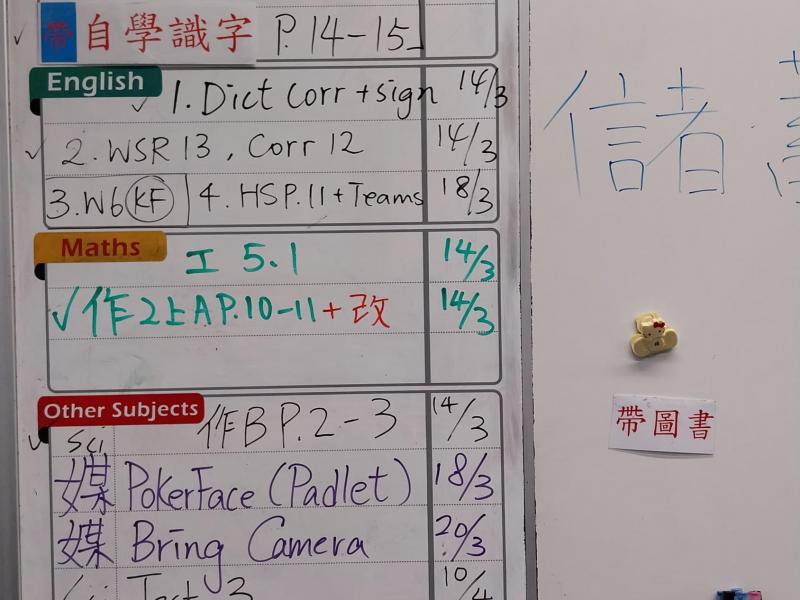 帶 自學識字 P.14-15
English
1. Dict Corr + sign 14/3
2. WSR 13, Corr 12 14/3
3. W6 KF 4. HS P.11 + Teams 18/3
Maths
工 5.1 14/3
作2上A P.10-11 + 改 14/3
Other Subjects
Sci 作B P.2-3 14/3
媒 PokerFace (Padlet) 18/3
媒 Bring Camera 20/3
Test 3 10/4
信者
帶圖書